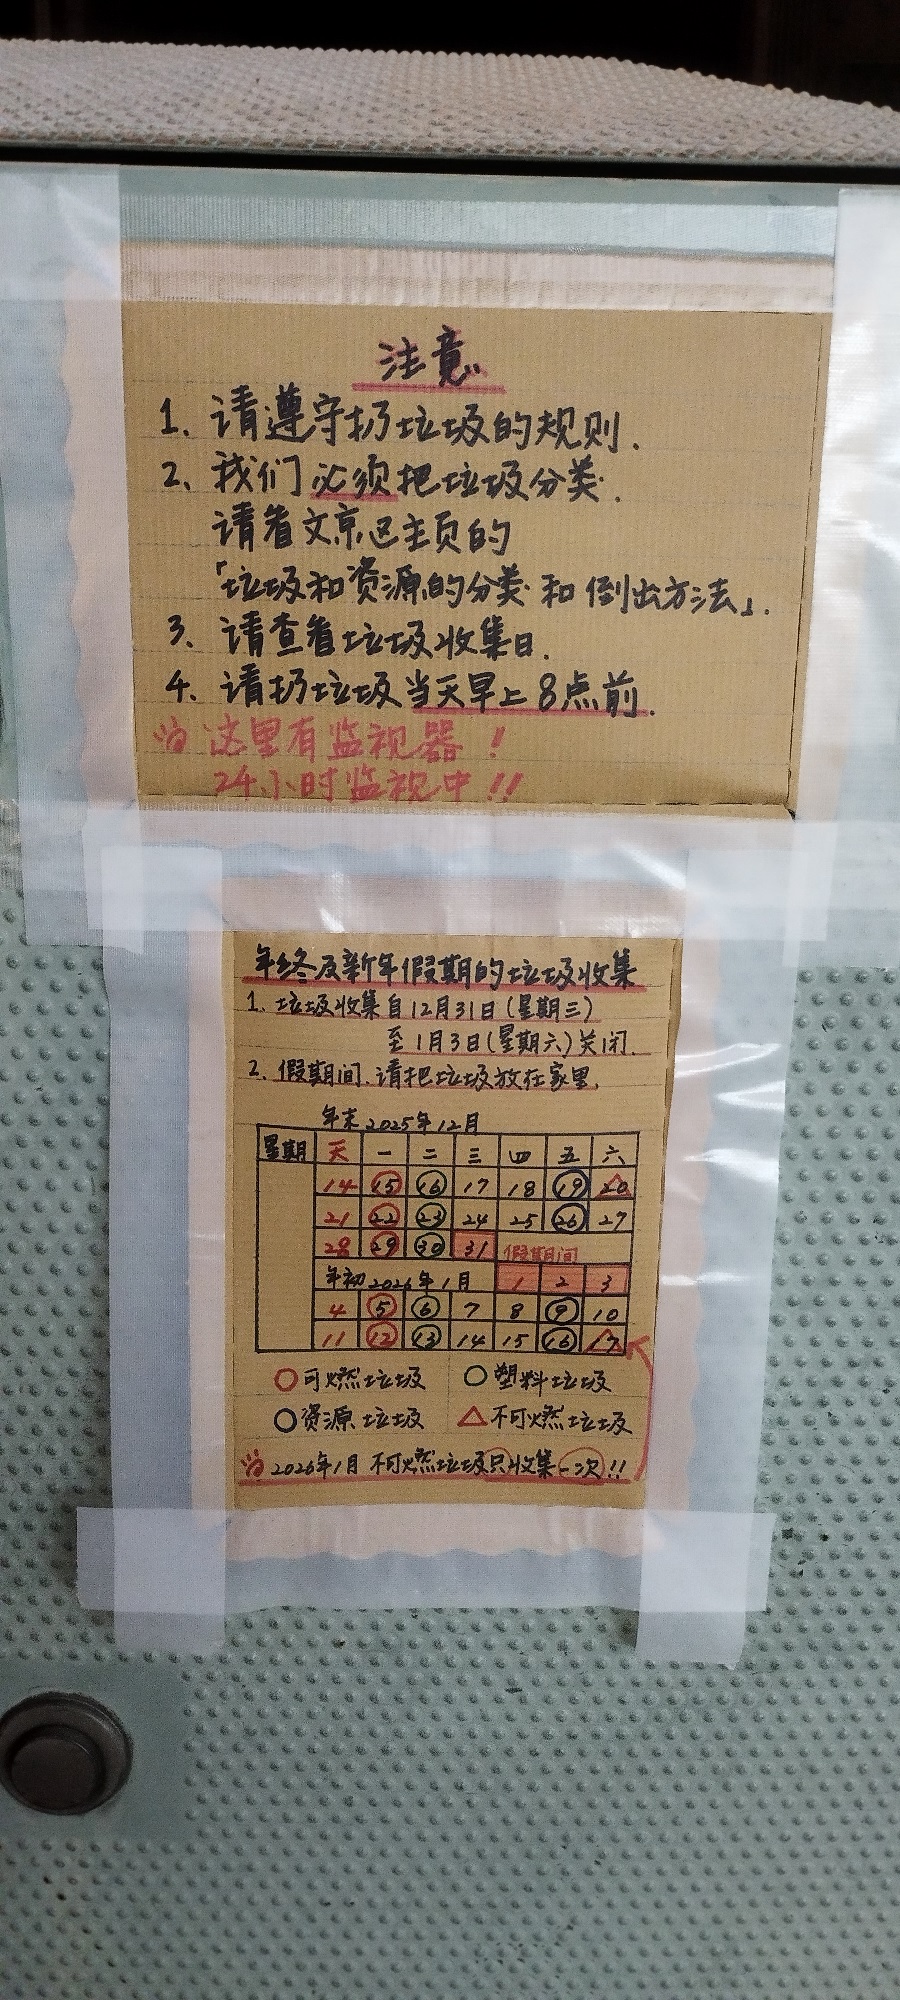 注意
1. 请遵守扔垃圾的规则.
2. 我们必须把垃圾分类.
请看文京区主页的
「垃圾和资源的分类和倒出方法」.
3. 请查看垃圾收集日.
4. 请扔垃圾当天早上8点前.
这里有监视器!
24小时监视中!!
年终及新年假期的垃圾收集
1. 垃圾收集自12月31日(星期三)
至1月3日(星期六)关闭.
2. 假期间.请把垃圾放在家里.
年末2025年12月
星期 天 一 二 三 四 五 六
14 15 16 17 18 19 20
21 22 23 24 25 26 27
28 29 30 31 假期间
年初2026年1月 1 2 3
4 5 6 7 8 9 10
11 12 13 14 15 16 17
○可燃垃圾 ○塑料垃圾
○资源垃圾 △不可燃垃圾
2026年1月 不可燃垃圾只收集一次!!